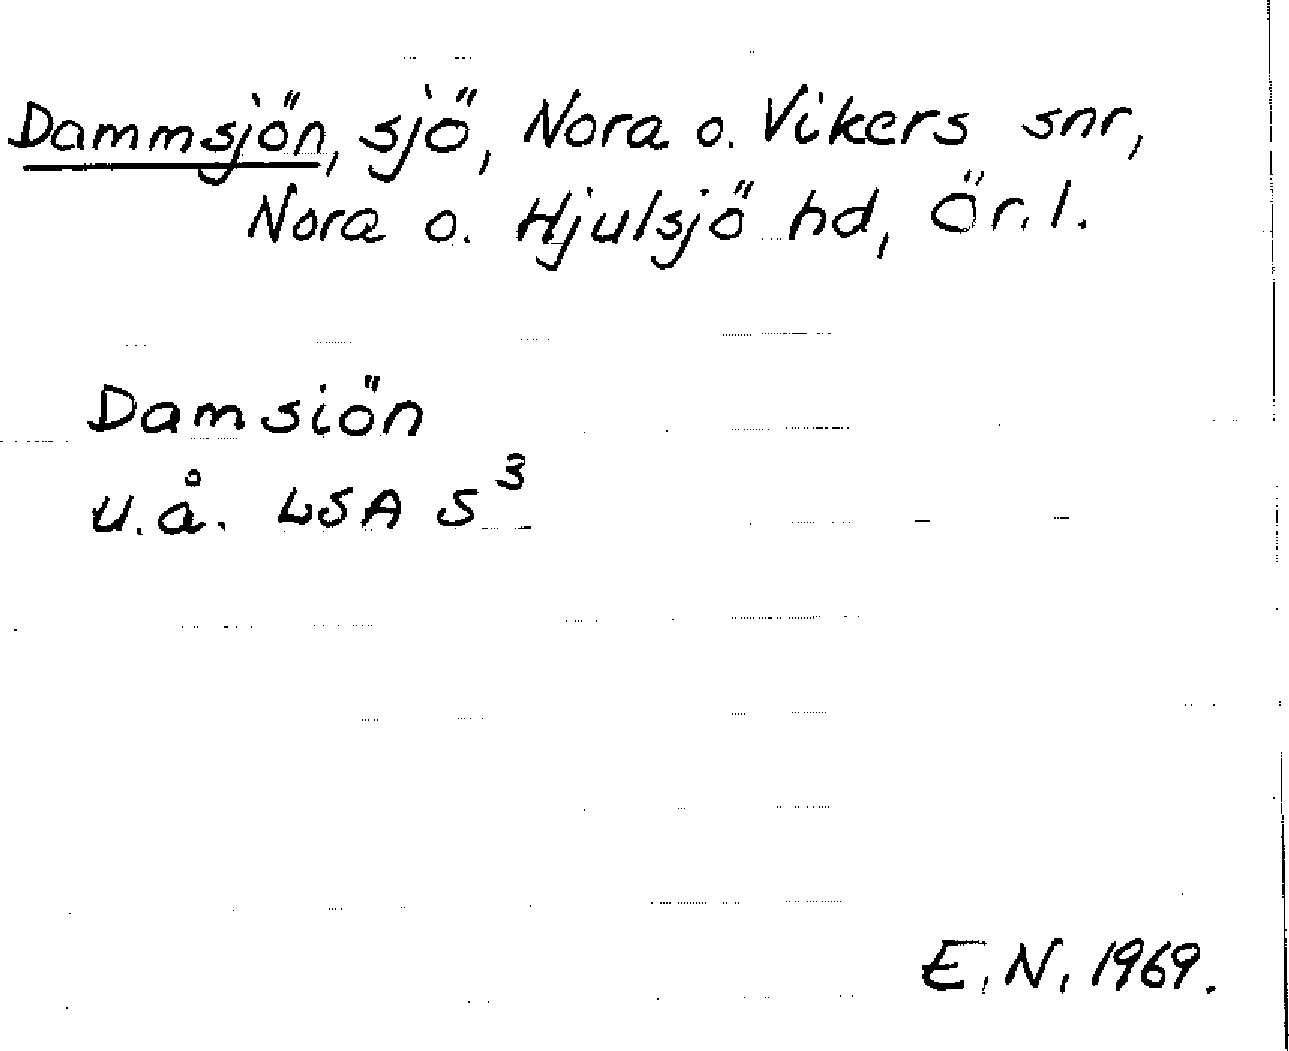 Dammsjön, sjö, Nora o. Vikers snr,
Nora o. Hjulsjö hd, Ör. l.
Damsiön
u.å. LSA S³
E. N. 1969.